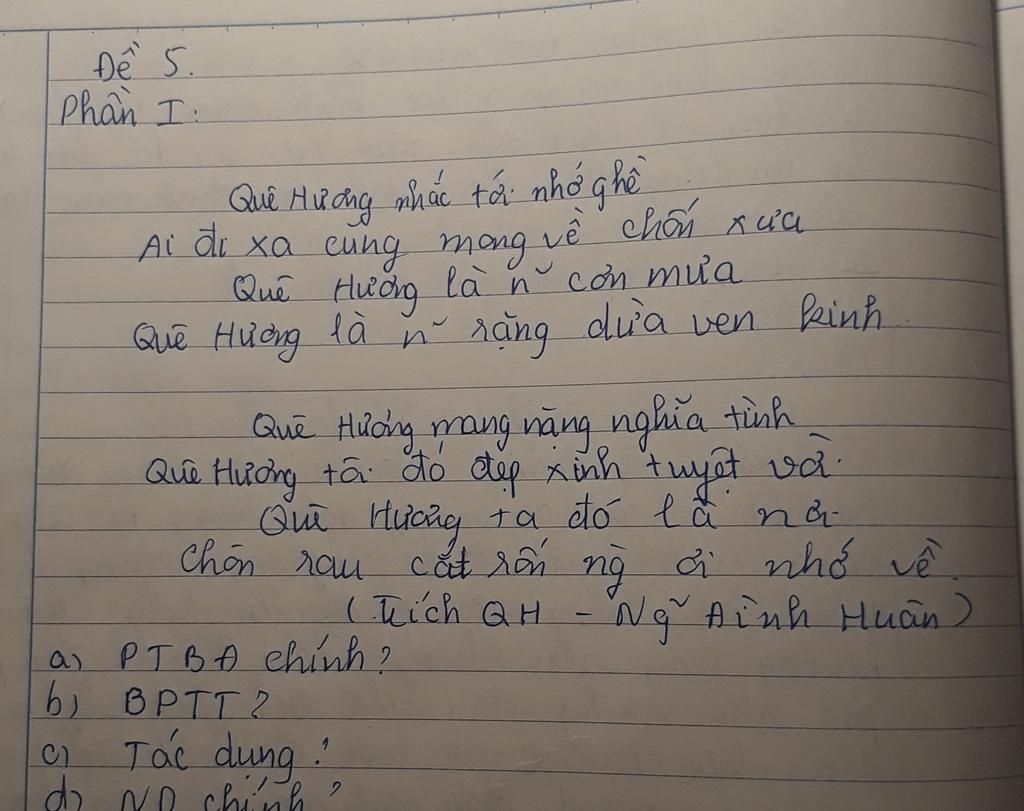 Đề 5.
Phần I:
Quê Hương nhắc tới nhớ ghê
Ai đi xa cũng mong về chốn xưa
Quê Hương là n~ cơn mưa
Quê Hương là n~ rặng dừa ven kinh
Quê Hương mang nặng nghĩa tình
Quê Hương tôi đó đẹp xinh tuyệt vời
Quê Hương ta đó là nơi
Chôn rau cắt rốn ng` ơi nhớ về.
(Trích QH - Ng~ Đình Huân)
a) PTBĐ chính?
b) BPTT?
c) Tác dụng?
d) ND chính?